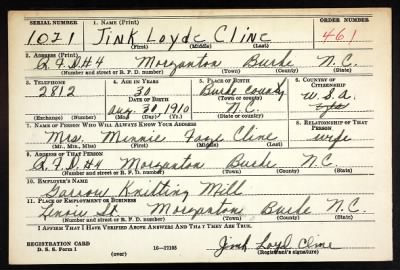 SERIAL NUMBER 1. NAME (Print) ORDER NUMBER
1021 Jink Loyde Cline 461
(First) (Middle) (Last)
2. ADDRESS (Print)
R.F.D #4 Morganton Burke N.C.
(Number and street or R. F. D. number) (Town) (County) (State)
3. TELEPHONE 4. AGE IN YEARS 5. PLACE OF BIRTH 6. COUNTRY OF CITIZENSHIP
2812 30 Burke County U.S.A.
DATE OF BIRTH (Town or county)
Aug. 30 1910 N.C.
(Exchange) (Number) (Mo.) (Day) (Yr.) (State or country)
7. NAME OF PERSON WHO WILL ALWAYS KNOW YOUR ADDRESS 8. RELATIONSHIP OF THAT PERSON
Mrs Minnie Faye Cline wife
(Mr., Mrs., Miss) (First) (Middle) (Last)
9. ADDRESS OF THAT PERSON
R.F.D #4 Morganton Burke N.C.
(Number and street or R. F. D. number) (Town) (County) (State)
10. EMPLOYER'S NAME
Garrou Knitting Mill
11. PLACE OF EMPLOYMENT OR BUSINESS
Lenoir St. Morganton Burke N.C.
(Number and street or R. F. D. number) (Town) (County) (State)
I AFFIRM THAT I HAVE VERIFIED ABOVE ANSWERS AND THAT THEY ARE TRUE.
REGISTRATION CARD
D. S. S. Form 1 (over) 16—17105
Jink Loyd Cline
(Registrant's signature)